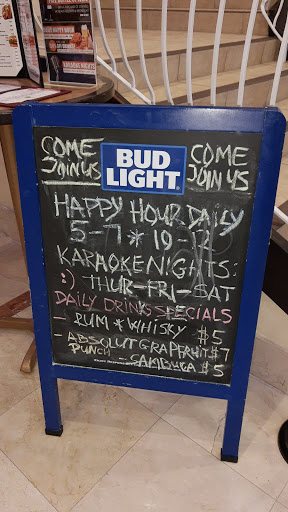 COME JOIN US
BUD LIGHT
COME JOIN US
HAPPY HOUR DAILY
5-7 * 10-12
KARAOKE NIGHTS:
:) THUR-FRI-SAT
DAILY DRINK SPECIALS
- RUM * WHISKY $5
ABSOLUT GRAPEFRUIT $7
PUNCH
- SAMBUCA $5
KARAOKE NIGHTS